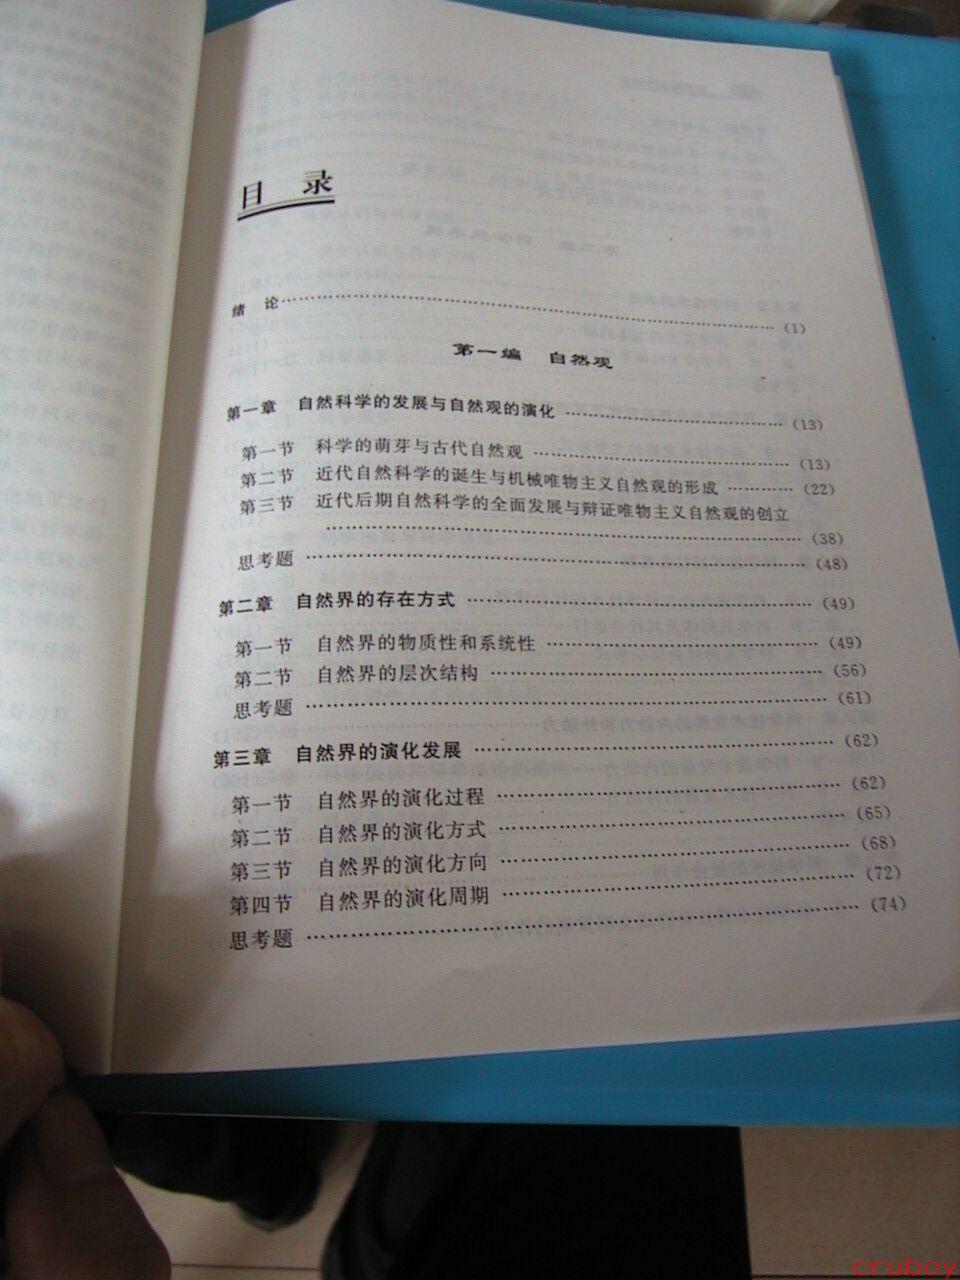 目 录
绪 论……………………………………………(1)
第一编 自然观
第一章 自然科学的发展与自然观的演化……………………(13)
第一节 科学的萌芽与古代自然观……………………(13)
第二节 近代自然科学的诞生与机械唯物主义自然观的形成…………(22)
第三节 近代后期自然科学的全面发展与辩证唯物主义自然观的创立
……………………………………………(38)
思考题……………………………………………(48)
第二章 自然界的存在方式……………………………(49)
第一节 自然界的物质性和系统性……………………(49)
第二节 自然界的层次结构……………………………(56)
思考题……………………………………………(61)
第三章 自然界的演化发展……………………………(62)
第一节 自然界的演化过程……………………………(62)
第二节 自然界的演化方式……………………………(65)
第三节 自然界的演化方向……………………………(68)
第四节 自然界的演化周期……………………………(72)
思考题……………………………………………(74)
cruboy